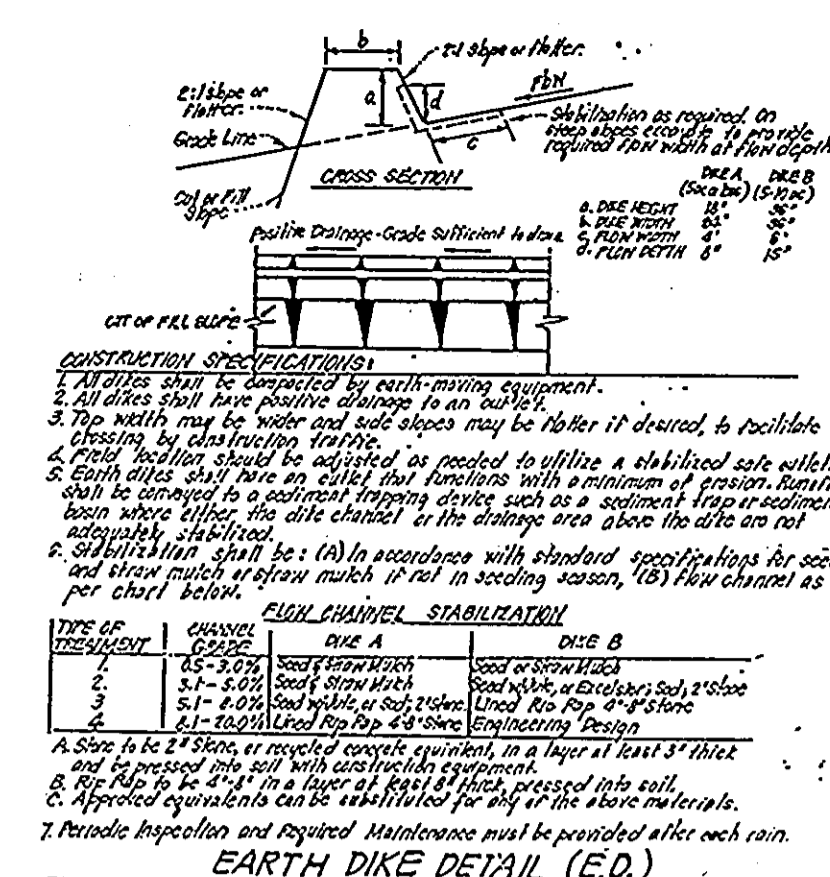 b
2:1 slope or flatter.
2:1 slope or flatter.
a
d
FLOW
Grade Line
c
Stabilization as required. On
steep slopes excavate to provide
required flow width at flow depth
CROSS SECTION
Cut or Fill
Slope
DIKE A DIKE B
(5ac or less) (5-10ac)
a. DIKE HEIGHT 18" 36"
b. DIKE WIDTH 36"
c. FLOW WIDTH 4' 6'
d. FLOW DEPTH 8" 15"
Positive Drainage-Grade Sufficient to drain
CUT OR FILL SLOPE
CONSTRUCTION SPECIFICATIONS:
1. All dikes shall be compacted by earth-moving equipment.
2. All dikes shall have positive drainage to an outlet.
3. Top width may be wider and side slopes may be flatter if desired, to facilitate
crossing by construction traffic.
4. Field location should be adjusted as needed to utilize a stabilized safe outlet
5. Earth dikes shall have an outlet that functions with a minimum of erosion. Runoff
shall be conveyed to a sediment trapping device such as a sediment trap or sediment
basin where either the dike channel or the drainage area above the dike are not
adequately stabilized.
6. Stabilization shall be: (A) In accordance with standard specifications for seed
and straw mulch or straw mulch if not in seeding season, (B) Flow channel as
per chart below.
FLOW CHANNEL STABILIZATION
TYPE OF TREATMENT CHANNEL GRADE DIKE A DIKE B
1. 0.5-3.0% Seed & Straw Mulch Seed or Straw Mulch
2. 3.1-5.0% Seed & Straw Mulch Seed w/Jute, or Excelsior; Sod; 2" Stone
3 5.1-8.0% Seed w/Jute, or Sod; 2" Stone Lined Rip Rap 4"-8" Stone
4. 8.1-20.0% Lined Rip Rap 4-8" Stone Engineering Design
A. Stone to be 2" Stone, or recycled concrete equivilent, in a layer at least 3" thick
and be pressed into soil with construction equipment.
B. Rip Rap to be 4"-8" in a layer at least 8" thick, pressed into soil.
C. Approved equivalents can be substituted for any of the above materials.
7. Periodic Inspection and Required Maintenance must be provided after each rain.
EARTH DIKE DETAIL (E.D.)